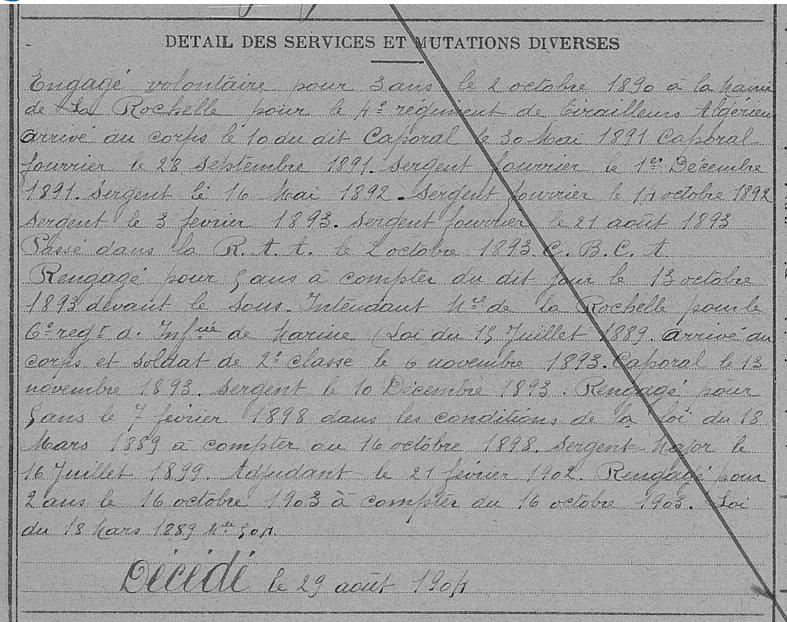 DETAIL DES SERVICES ET MUTATIONS DIVERSES
Engagé volontaire pour 3 ans le 2 octobre 1890 à la Mairie
de La Rochelle pour le 4e régiment de Tirailleurs Algérien
arrivé au corps le 10 du dit Caporal le 30 Mai 1891 Caporal-
fourrier le 28 Septembre 1891. Sergent fourrier le 1er Décembre
1891. Sergent le 16 Mai 1892. Sergent fourrier le 14 octobre 1892
Sergent le 3 février 1893. Sergent fourrier le 21 août 1893
Passé dans la R. A. A. le 2 octobre 1893. C. B. C. A
Rengagé pour 5 ans à compter du dit jour le 13 octobre
1893 devant le Sous-Intendant Mre de la Rochelle pour le
6e regt d'Infrie de Marine (Loi du 15 Juillet 1889. Arrivé au
corps et soldat de 2e classe le 6 novembre 1893. Caporal le 13
novembre 1893. Sergent le 10 Décembre 1893. Rengagé pour
5 ans le 7 février 1898 dans les conditions de la Loi du 18
Mars 1889 à compter du 16 octobre 1898. Sergent-Major le
16 Juillet 1899. Adjudant le 21 février 1902. Rengagé pour
2 ans le 16 octobre 1903 à compter du 16 octobre 1903. Loi
du 18 Mars 1889 504.
Décédé le 29 août 1904